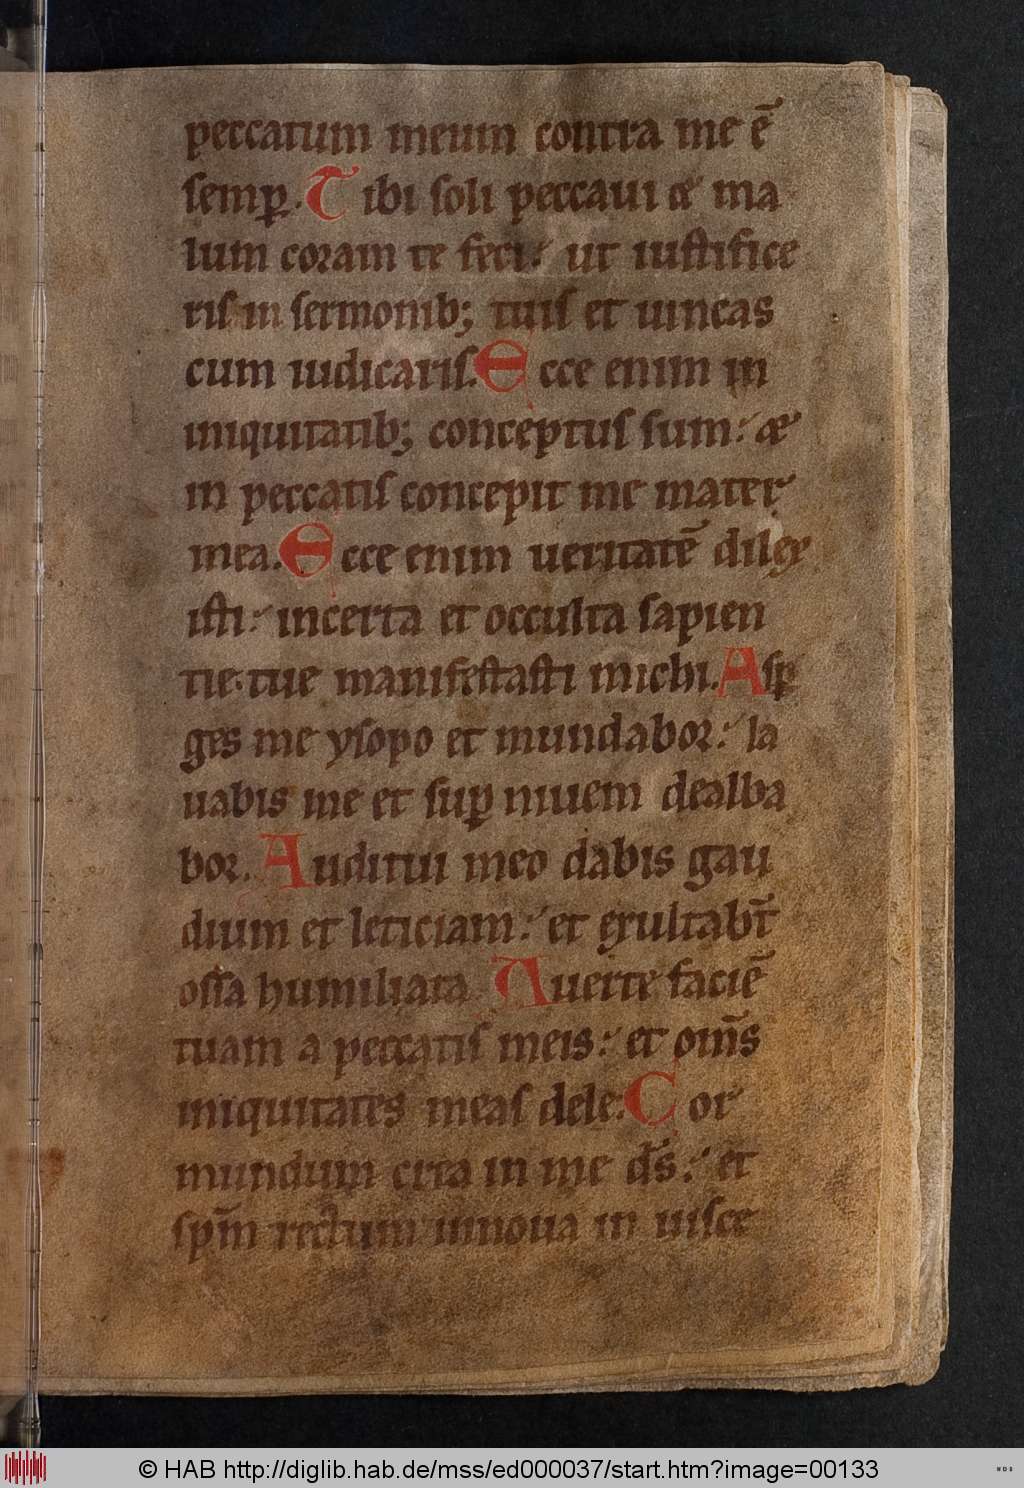 peccatum meum contra me ē
semꝑ. Tibi soli peccaui & ma
lum coram te feci: ut iustifice
ris in sermonib; tuis et uincas
cum iudicaris. Ecce enim in
iniquitatib; conceptus sum: &
in peccatis concepit me mater
mea. Ecce enim ueritatē dilex
isti: incerta et occulta sapien
tie tue manifestasti michi. Asꝑ
ges me ysopo et mundabor: la
uabis me et suꝑ niuem dealba
bor. Auditui meo dabis gau
dium et leticiam: et exultabt̄
ossa humiliata Auerte faciē
tuam a peccatis meis: et om̄s
iniquitates meas dele: Cor
mundum crea in me ds̄: et
spm̄ rectum innoua in uisce
© HAB http://diglib.hab.de/mss/ed000037/start.htm?image=00133